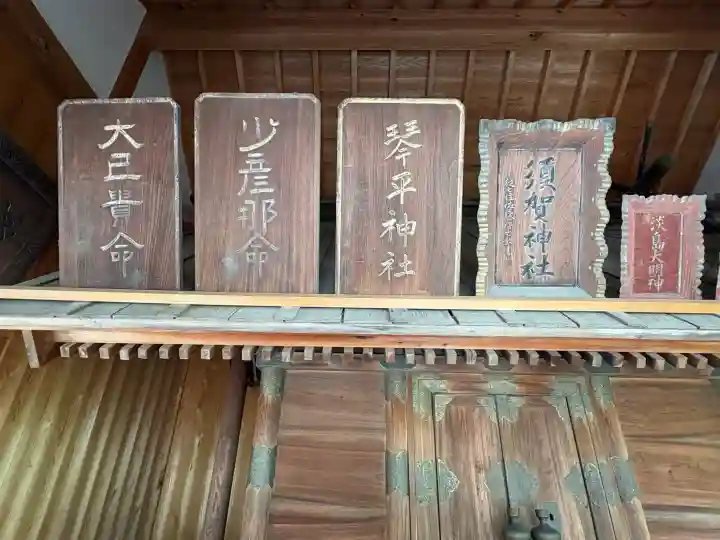 大己貴命
少彦那命
琴平神社
須賀神社
淡島大明神